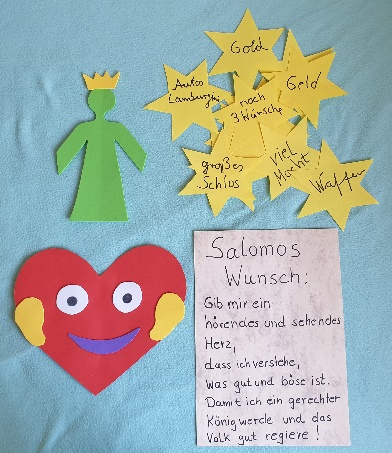 Gold
Geld
Autos
Lamburghi
noch
3 Wünsche
großes
Schlos
viel
Macht
Waffen
Salomos
Wunsch:
Gib mir ein
hörendes und sehendes
Herz,
dass ich verstehe,
was gut und böse ist.
Damit ich ein gerechter
König werde und das
Volk gut regiere!